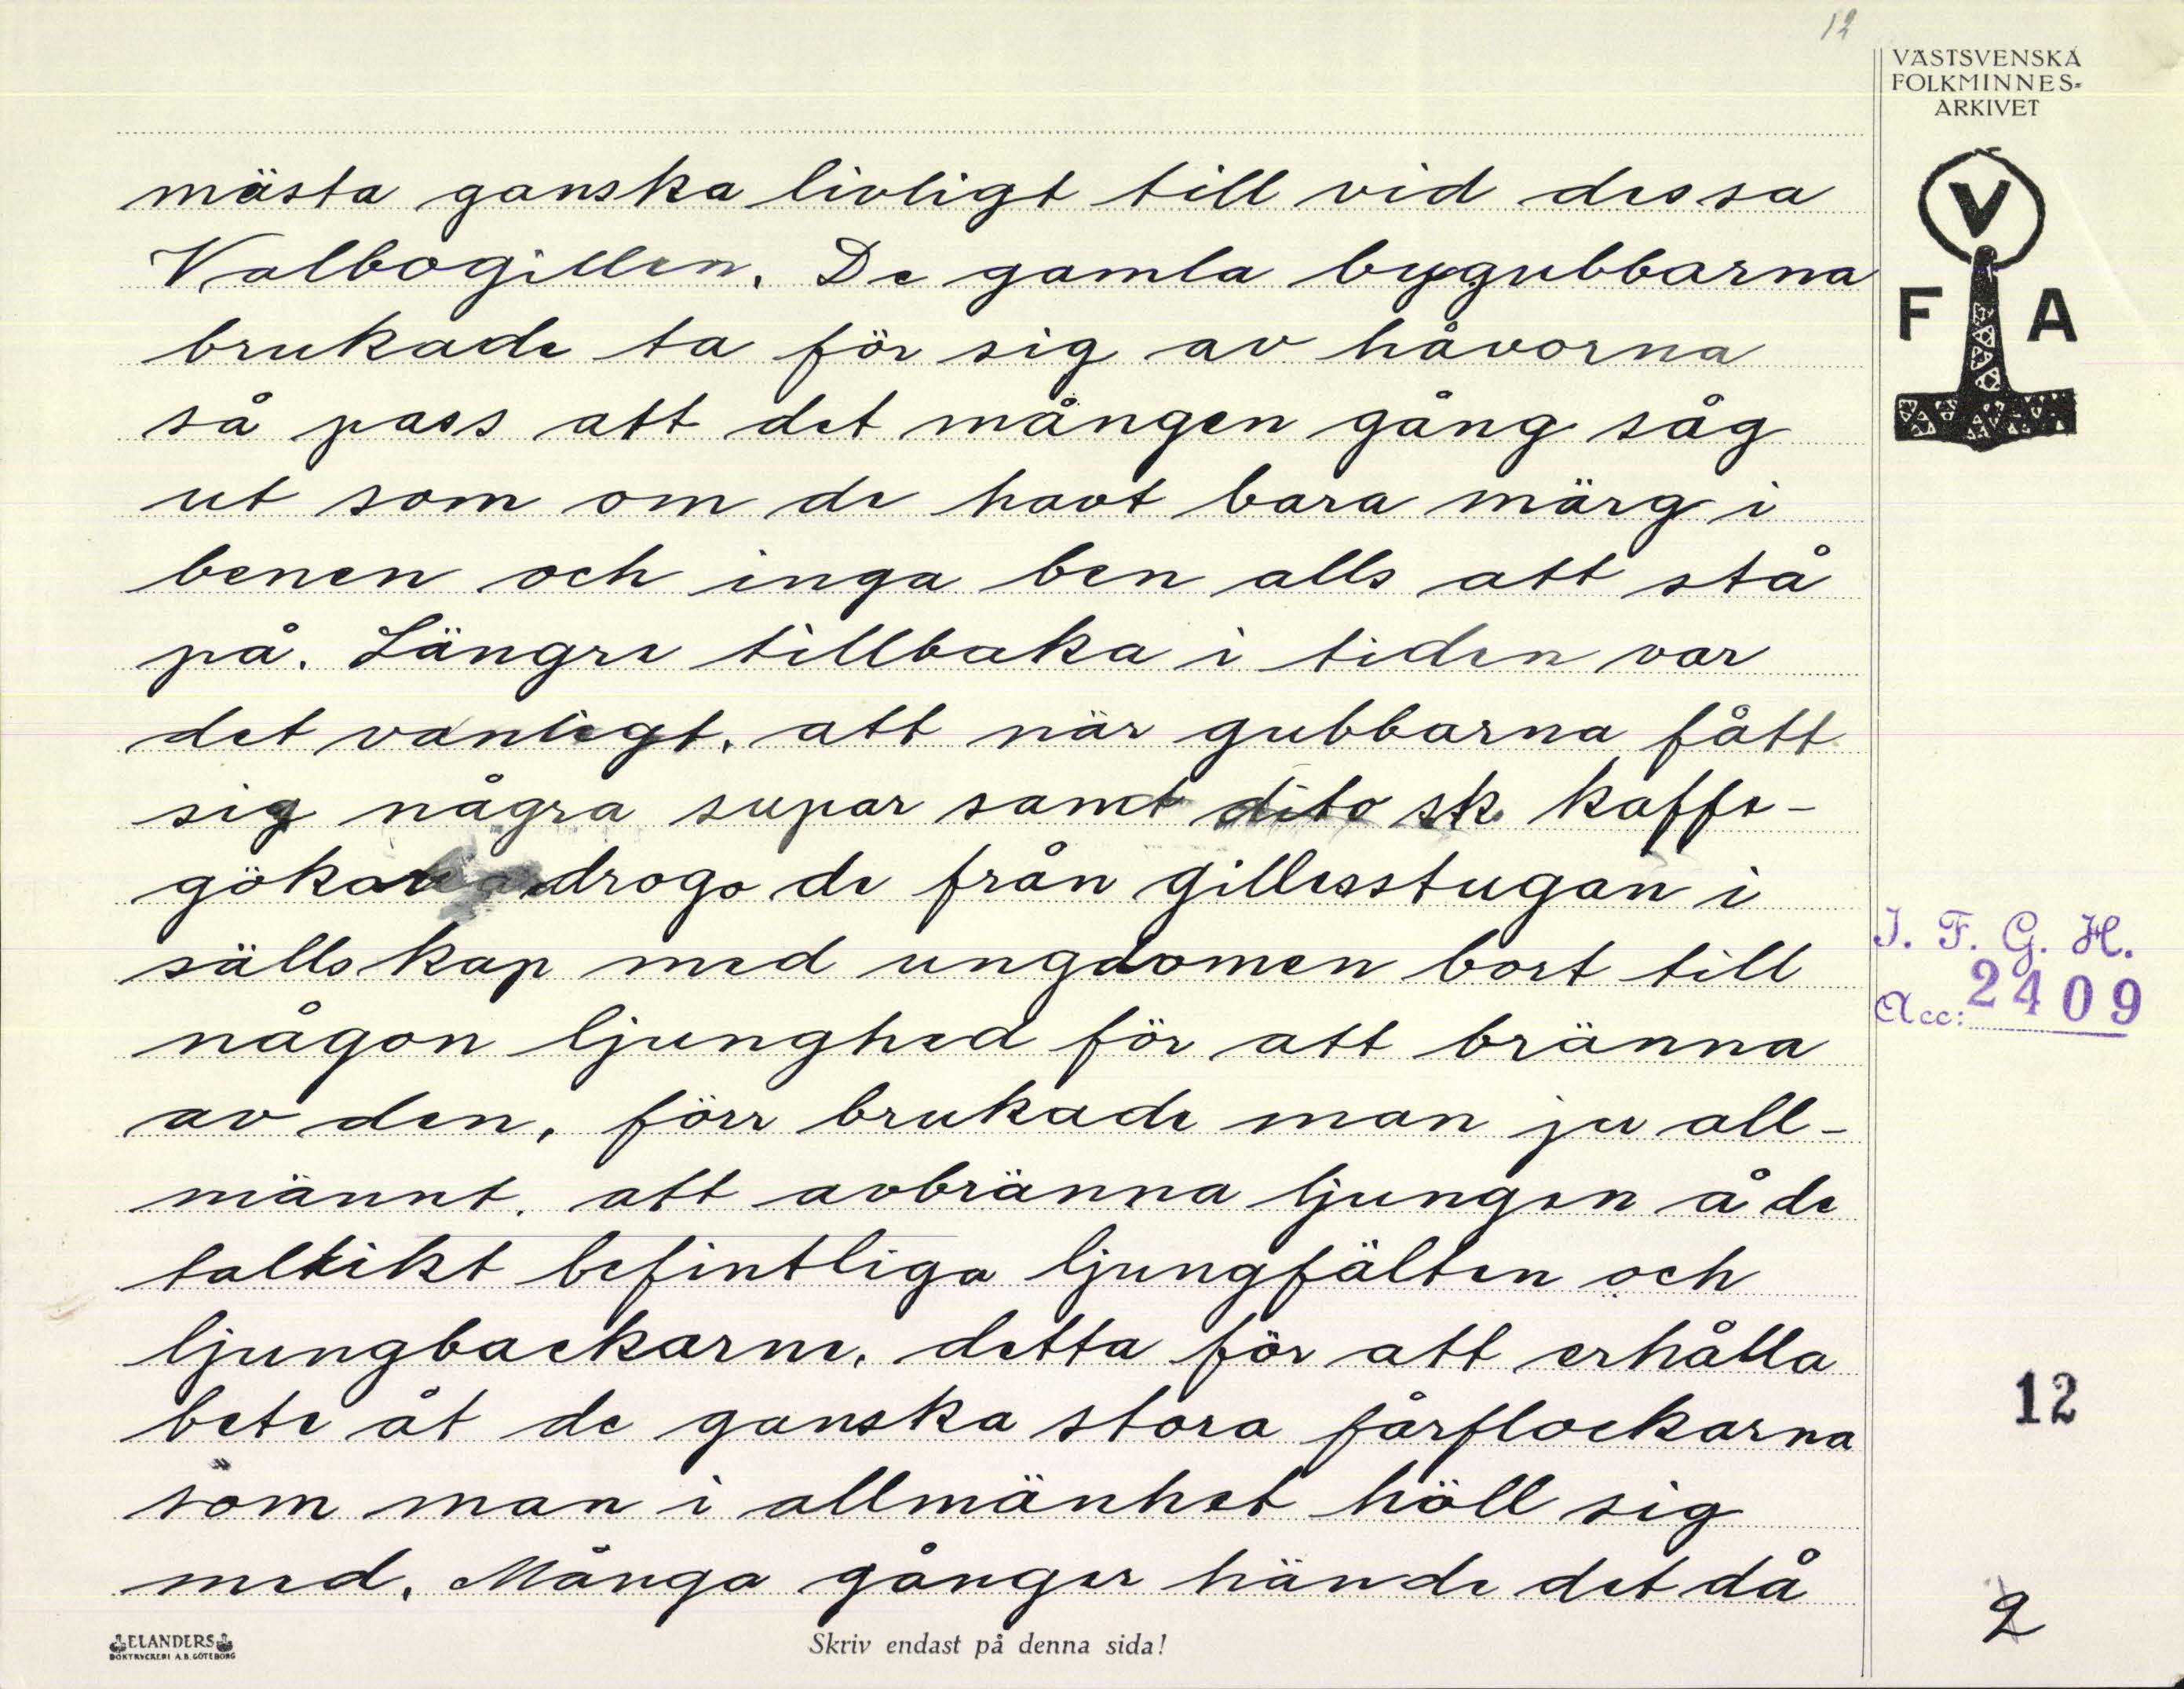 12
VÄSTSVENSKA
FOLKMINNES-
ARKIVET
V
F A
mästa ganska livligt till vid dessa
Valbogillen. De gamla bygubbarna
brukade ta för sig av håvorna
så pass att det mången gång såg
ut som om de havt bara märg i
benen och inga ben alls att stå
på. Längre tillbaka i tiden var
det vanligt, att när gubbarna fått
sig några supar samt dito sk. kaffe-
gökar drogo de från gillesstugan i
sällskap med ungdomen bort till
någon ljunghed för att bränna
av den, förr brukade man ju all-
männt, att avbränna ljungen å de
taltikt befintliga ljungfälten och
ljungbackarne, detta för att erhålla
bete åt de ganska stora fårflockarna
som man i allmänhet höll sig
med. Många gånger hände det då
I. F. G. H.
Acc: 2409
12
2
ELANDERS
BOKTRYCKERI A.B. GÖTEBORG
Skriv endast på denna sida!